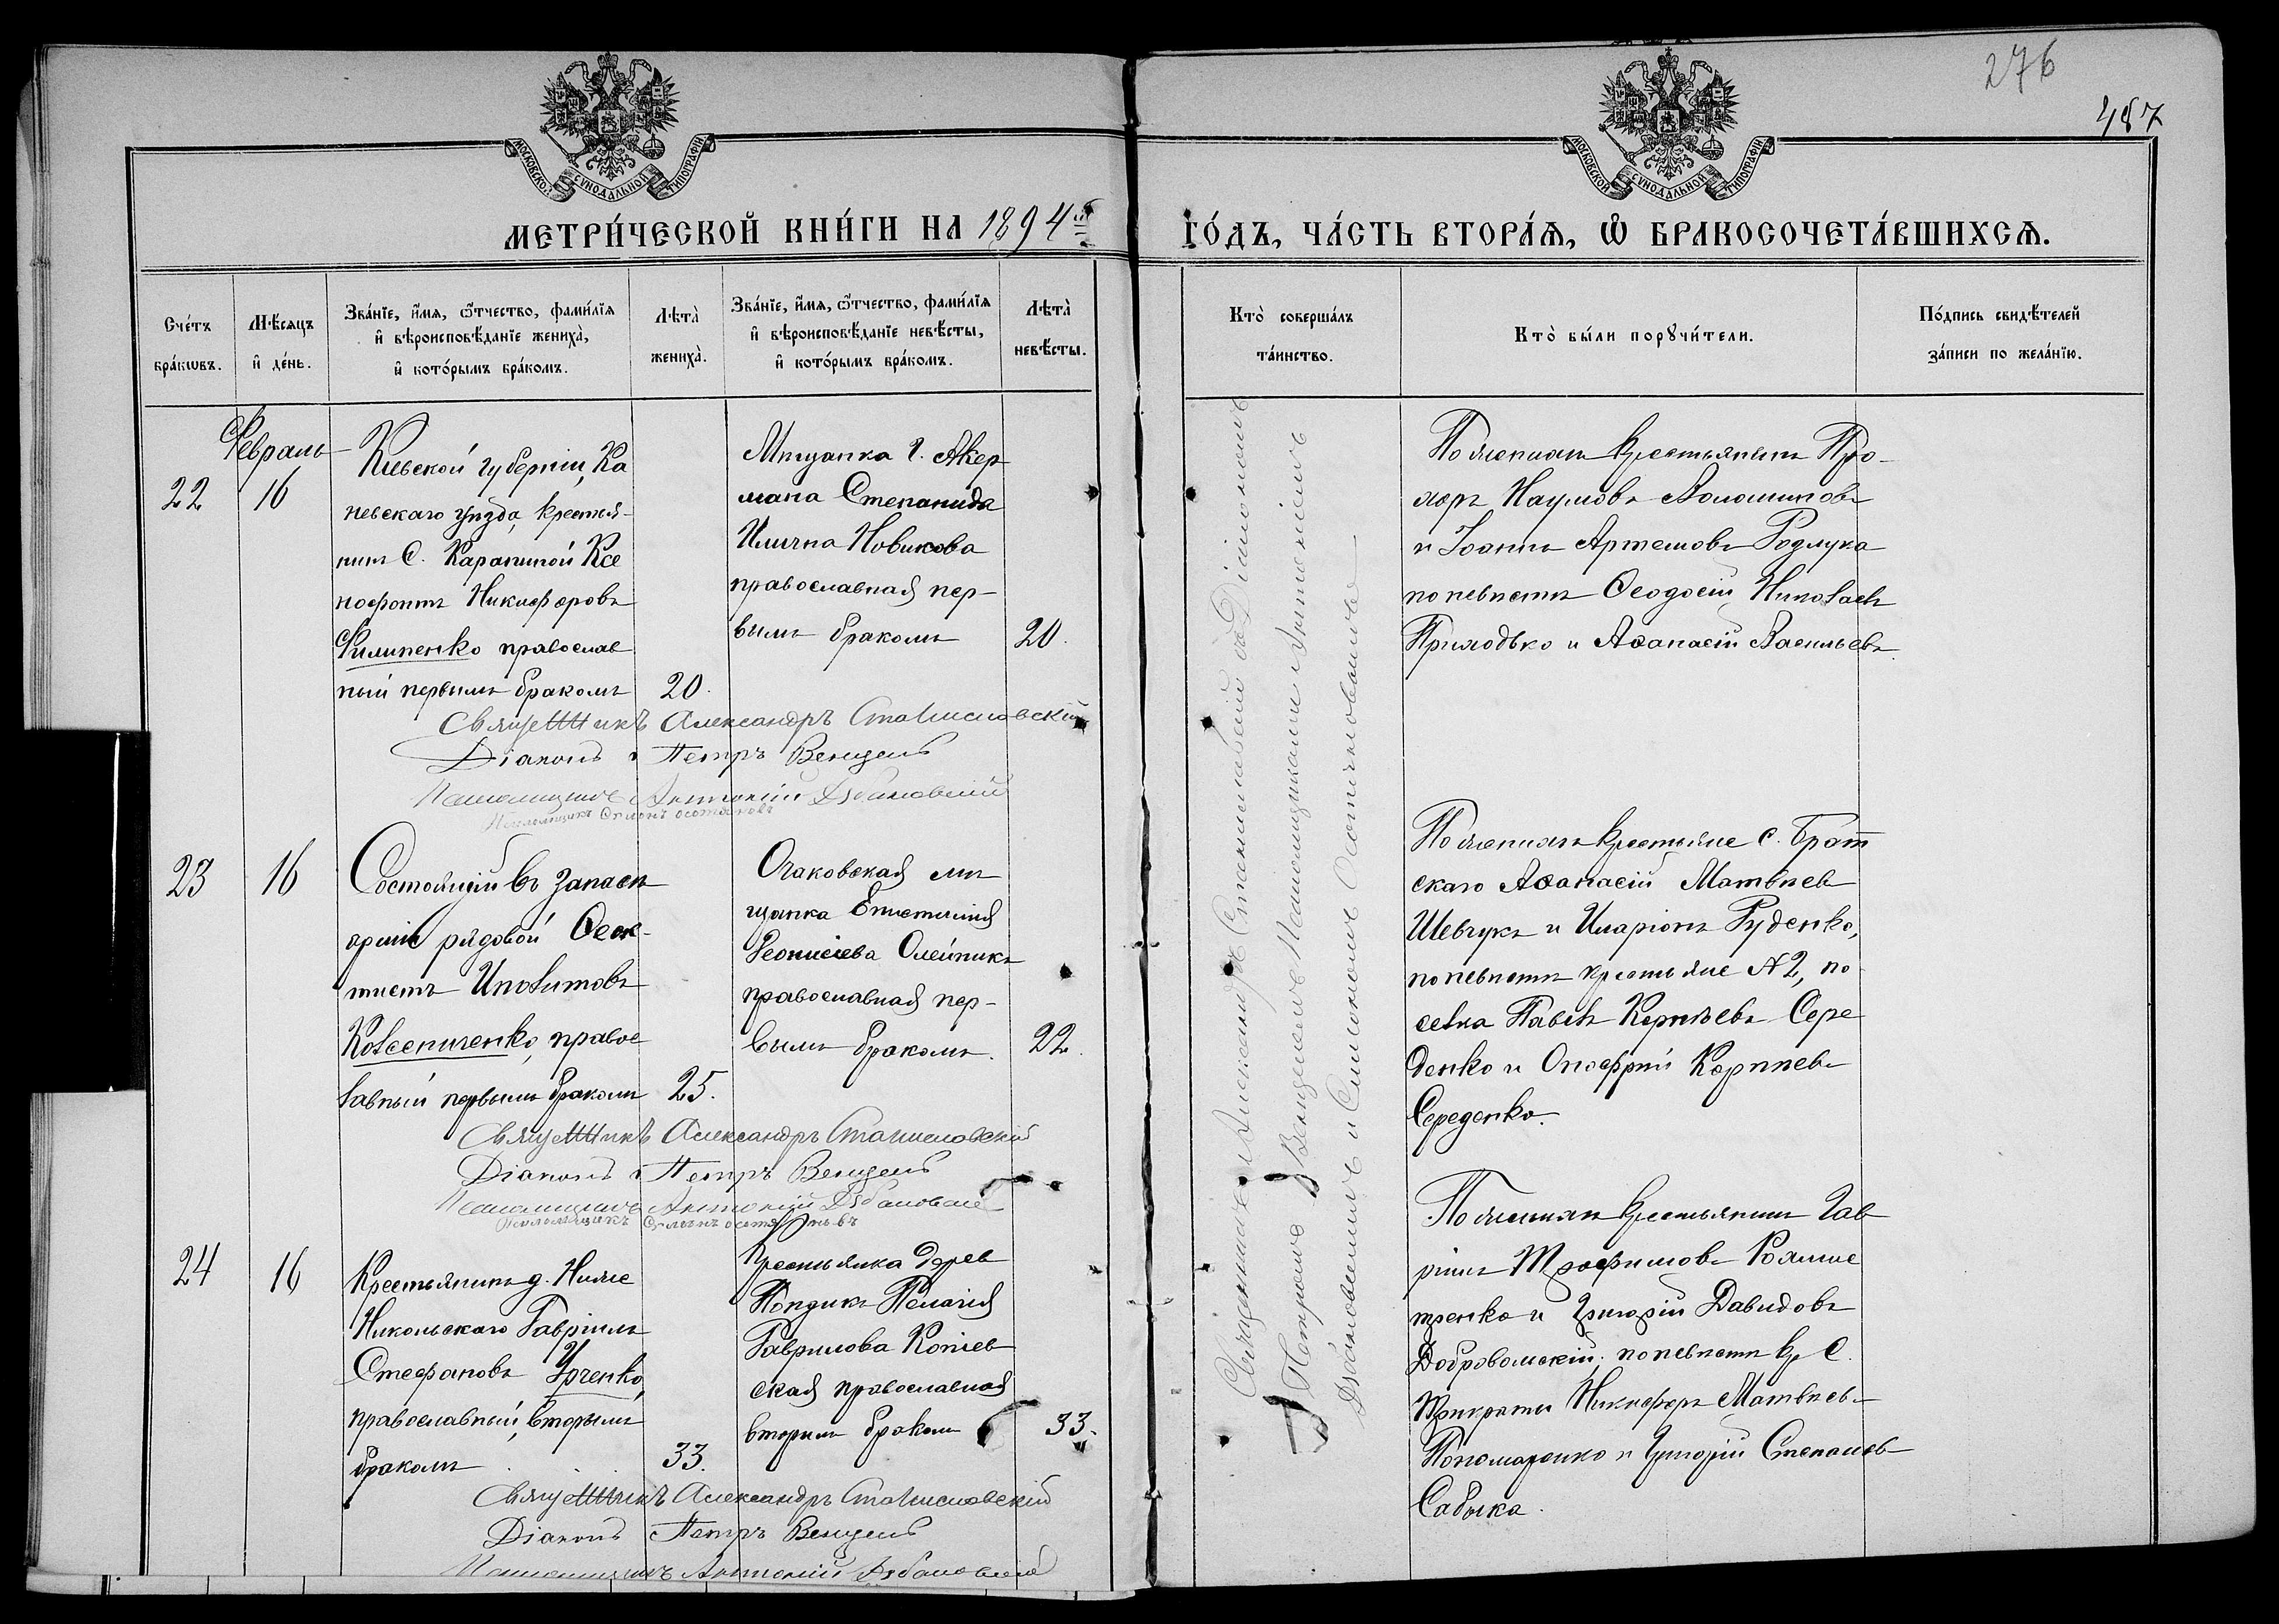 276
487
МОСКОВСКОЙ СУНОДАЛЬНОЙ ТИПОГРАФІИ
МОСКОВСКОЙ СУНОДАЛЬНОЙ ТИПОГРАФІИ
МЕТРИ́ЧЕСКОЙ КНИ́ГИ НА 1894й
ГО́ДЪ, ЧА́СТЬ ВТОРА́Ѧ, Ѡ҆ БРАКОСОЧЕТА́ВШИХСѦ.
Сче́тъ
бра́кѡвъ.
Мѣ́сяцъ
и҆ де́нь.
Зва́нїе, и҆́мя, ѻ҆́тчество, фами́лїя
и҆ вѣроисповѣ́данїе жениха̀,
и҆ кото́рымъ бра́комъ.
Лѣта̀
жениха̀.
Зва́нїе, и҆́мя, ѻ҆́тчество, фами́лїя
и҆ вѣроисповѣ́данїе невѣ́сты,
и҆ кото́рымъ бра́комъ.
Лѣта̀
невѣ́сты.
Кто̀ соверша́лъ
та́инство.
Кто̀ бы́ли порꙋчи́тели.
По́дпись свидѣ́телей
за́писи по жела́нїю.
Февраль
22
16
Кіевской губерніи, Ка
невскаго уѣзда, крестья-
нинъ С. Карапишой Ксе
нофонтъ Никифоровъ
Филипенко православ
ный первымъ бракомъ
20.
Мѣщанка г. Акер
мана Степанида
Ильина Новикова
православная пер-
вымъ бракомъ
20.
По женихѣ крестьянинъ Про-
хоръ Наумовъ Воло
и Іоаннъ Артемовъ
по невѣстѣ Ѳеодосій Николаевъ
Приходько и Аѳанасій Васильевъ
Священникъ Александръ Станиславскій
Діаконъ Петръ Венцель
Псаломщикъ Антоній
Псаломщикъ
23
16
Состоящій въ запасѣ
арміи рядовой Ѳеок-
тистъ Иполитовъ
Колсениченко, правос
лавный первымъ бракомъ
25.
Очаковская мѣ
щанка Епистимія
Леонтіева Олейникъ
православная пер-
вымъ бракомъ.
22.
По женихѣ крестьяне с. Брат
скаго Аѳанасій Матвѣевъ
Шевчукъ и Иларіонъ Руденко,
по невѣстѣ крестьяне № 2, по
селка Павелъ Корнѣевъ Сере
денко и Онофрій Корнѣевъ
Середенко.
Священникъ Александръ Станиславскій
Діаконъ Петръ Венцель
Псаломщикъ Антоній
Псаломщикъ
24
16
Крестьянинъ д. Ниже
Никольскаго Гавріилъ
Стефановъ Урченко,
православный, вторымъ
бракомъ
33.
Крестьянка дерев
Пелагія
Гаврилова Копіев
ская православная
вторымъ бракомъ
33.
По женихѣ крестьянинъ Гав
ріилъ Трофимовъ
тренко и Григорій Давидовъ
Добровольскій; по невѣстѣ кр С.
Трикраты Никифоръ Матвѣевъ
Пономаренко и Григорій Степановъ
Сабыка.
Священникъ Александръ Станиславскій
Діаконъ Петръ Венцель
Псаломщикъ Антоній
Священникъ Александръ Станиславскій съ Діакономъ
Петромъ Венцелемъ Псаломщиками Антоніемъ